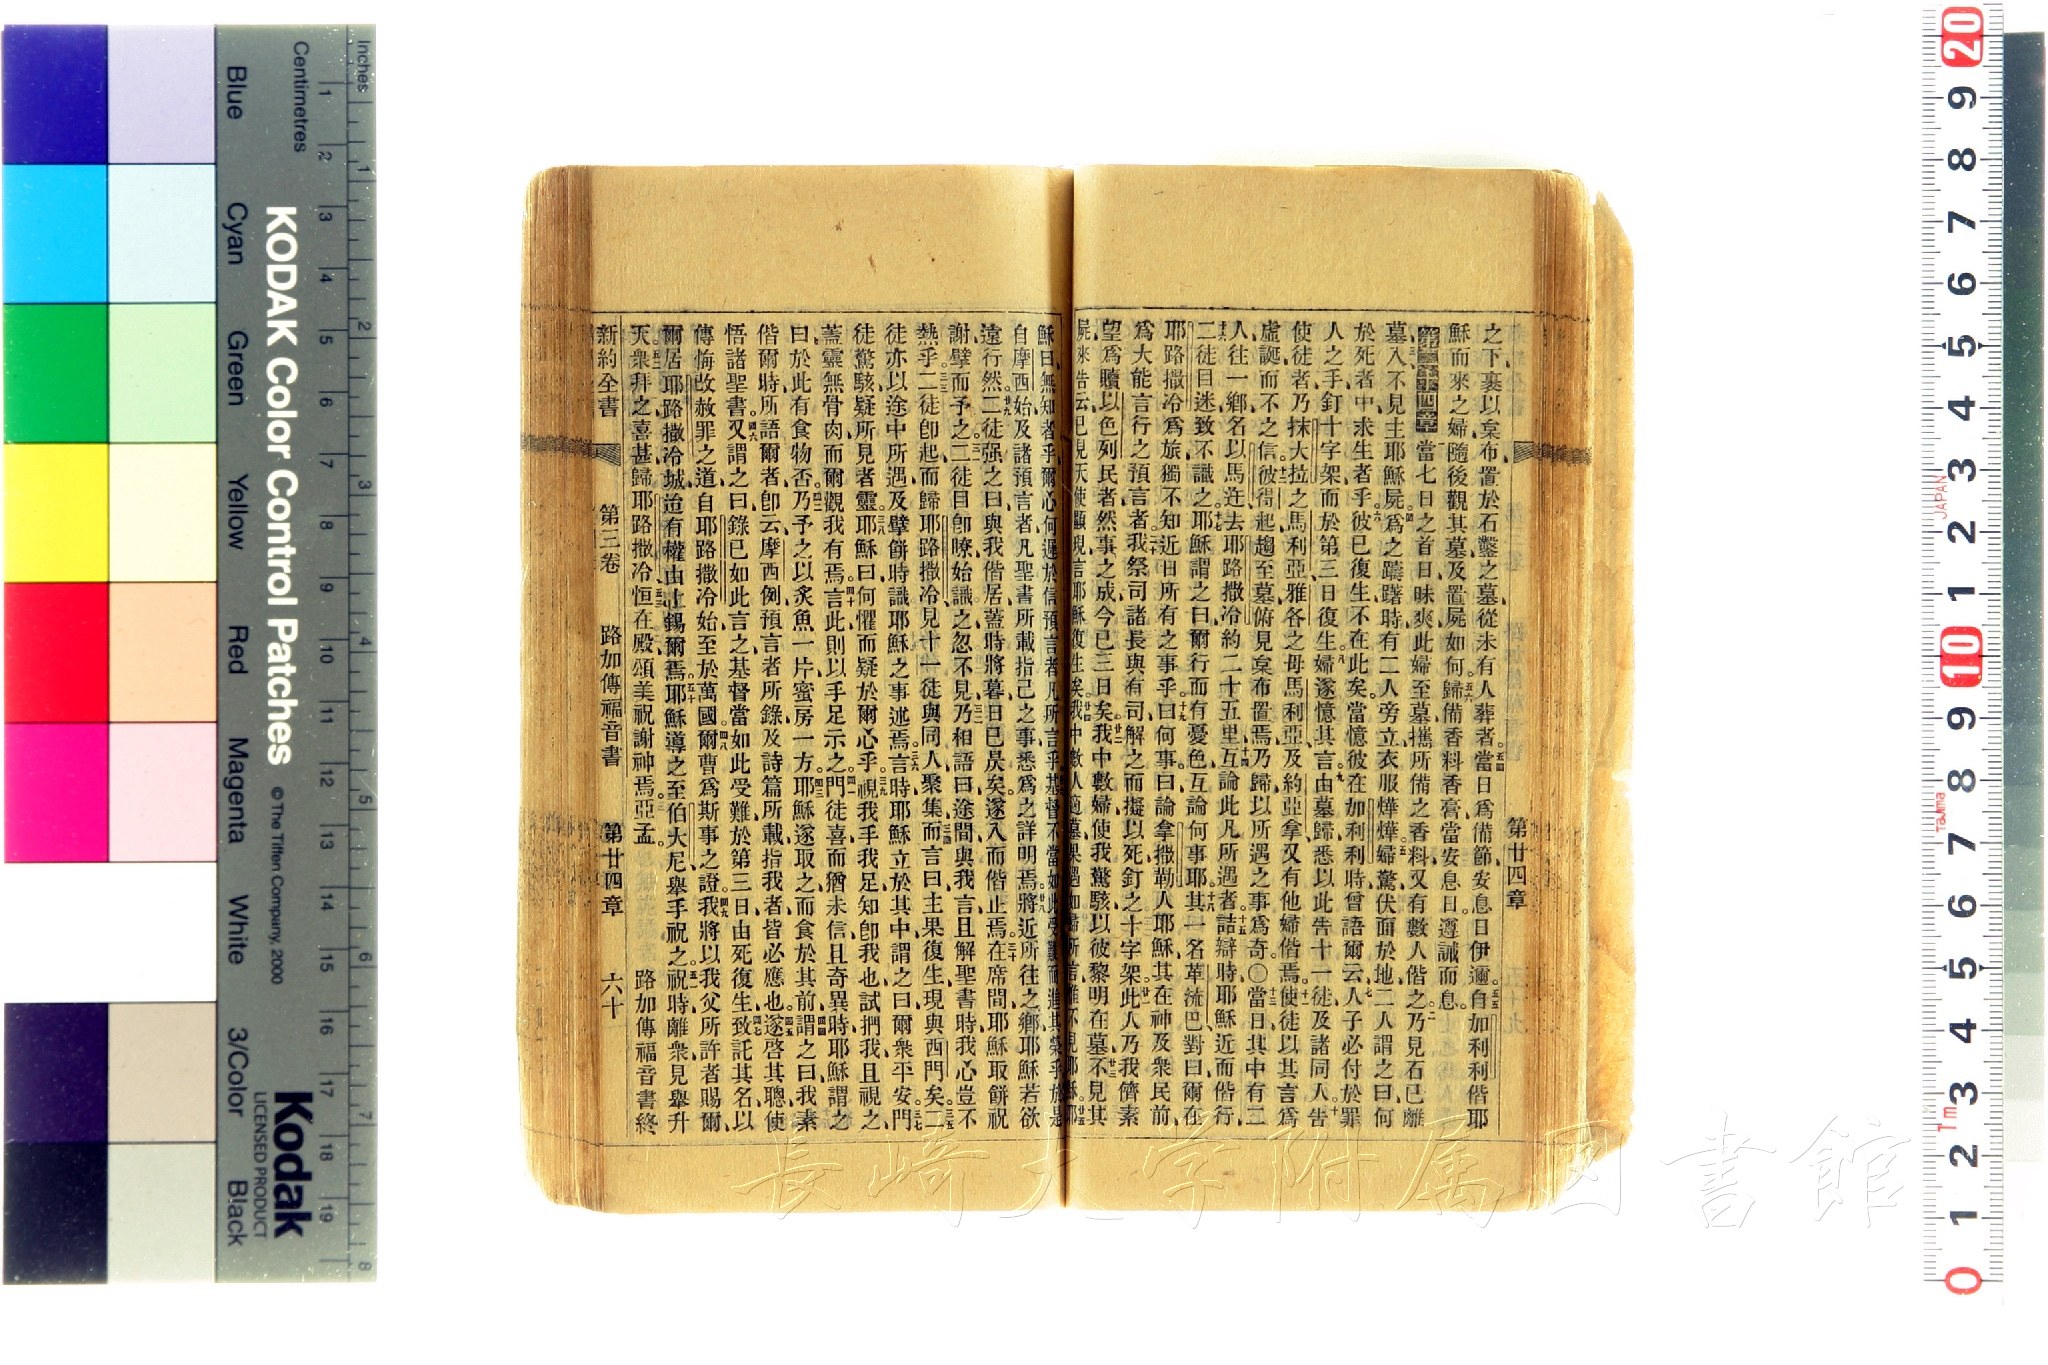 第廿四章
之下裹以枲布置於石鑿之墓從未有人葬者當日爲備節安息日伊邇自加利利偕耶
穌而來之婦隨後觀其墓及置屍如何歸備香料香膏當安息日遵誡而息
第二十四章 當七日之首日昧爽此婦至墓攜所備之香料又有數人偕之乃見石已離
墓入不見主耶穌屍爲之躊躇時有二人旁立衣服燁燁婦驚伏面於地二人謂之曰何
於死者中求生者乎彼已復生不在此矣當憶彼在加利利時曾語爾云人子必付於罪
人之手釘十字架而於第三日復生婦遂憶其言由墓歸悉以此告十一徒及諸同人告
使徒者乃抹大拉之馬利亞雅各之母馬利亞及約亞拿又有他婦偕焉使徒以其言爲
虛誕而不之信彼得起趨至墓俯見枲布置焉乃歸以所遇之事爲奇○當日其中有二
人往一鄉名以馬迕去耶路撒冷約二十五里互論此凡所遇者詰辯時耶穌近而偕行
二徒目迷致不識之耶穌謂之曰爾行而有憂色互論何事耶其一名革流巴對曰爾在
耶路撒冷爲旅獨不知近日所有之事乎曰何事曰論拿撒勒人耶穌其在神及衆民前
爲大能言行之預言者我祭司諸長與有司解之而擬以死釘之十字架此人乃我儕素
望爲贖以色列民者然事之成今已三日矣我中數婦使我驚駭以彼黎明在墓不見其
屍來告云已見天使顯現言耶穌復生矣我中數人適墓果遇如婦所言惟不見耶穌耶
穌曰無知者乎爾心何遲於信預言者凡所言乎基督不當如此受難而進其榮乎於是
自摩西始及諸預言者凡聖書所載指己之事悉爲之詳明焉將近所往之鄉耶穌若欲
遠行然二徒强之曰與我偕居蓋時將暮日已昃矣遂入而偕止焉在席間耶穌取餅祝
謝擘而予之二徒目卽瞭始識之忽不見乃相語曰途間與我言且解聖書時我心豈不
熱乎二徒卽起而歸耶路撒冷見十一徒與同人聚集而言曰主果復生現與西門矣二
徒亦以途中所遇及擘餅時識耶穌之事述焉言時耶穌立於其中謂之曰爾衆平安門
徒驚駭疑所見者靈耶穌曰何懼而疑於爾心乎視我手我足知卽我也試捫我且視之
蓋靈無骨肉而爾觀我有焉言此則以手足示之門徒喜而猶未信且奇異時耶穌謂之
曰於此有食物否乃予之以炙魚一片蜜房一方耶穌遂取之而食於其前謂之曰我素
偕爾時所語爾者卽云摩西例預言者所錄及詩篇所載指我者皆必應也遂啓其聰使
悟諸聖書又謂之曰錄已如此言之基督當如此受難於第三日由死復生致託其名以
傳悔改赦罪之道自耶路撒冷始至於萬國爾曹爲斯事之證我將以我父所許者賜爾
爾居耶路撒冷城迨有權由上錫爾焉耶穌導之至伯大尼舉手祝之祝時離衆見舉升
天衆拜之喜甚歸耶路撒冷恒在殿頌美祝謝神焉亞孟 路加傳福音書終
新約全書 第三卷 路加傳福音書 第廿四章 六十
KODAK Color Control Patches © The Tiffen Company, 2000
Kodak
LICENSED PRODUCT
Inches
Centimetres
Blue Cyan Green Yellow Red Magenta White 3/Color Black
1 2 3 4 5 6 7 8 9 10 11 12 13 14 15 16 17 18 19
1 2 3 4 5 6 7 8
20 9 8 7 6 5 4 3 2 1 10 9 8 7 6 5 4 3 2 1 0
JAPAN
Tajima
Tm
長崎大学附属図書館